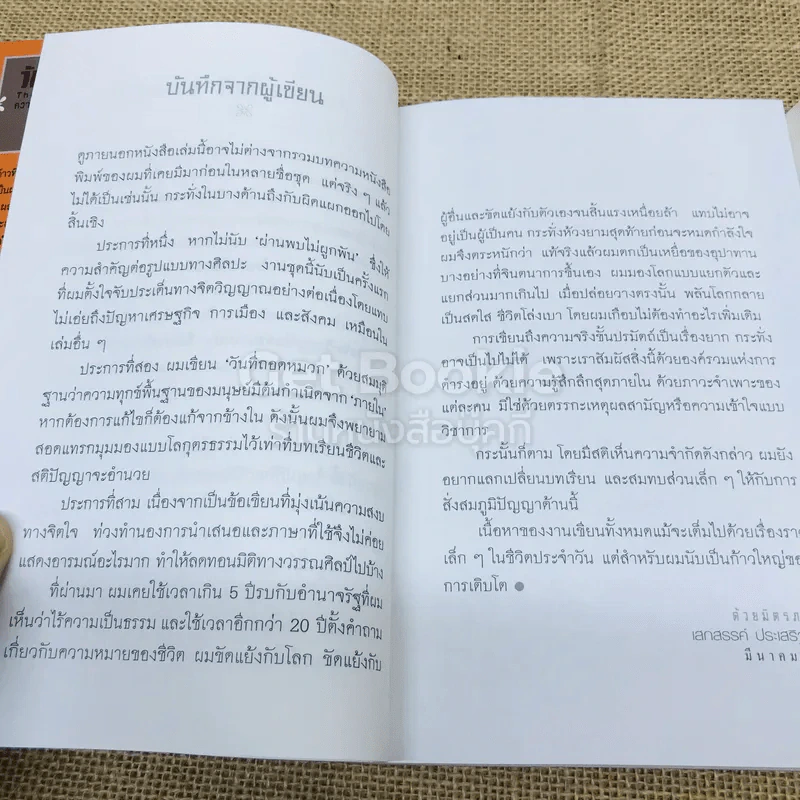 บันทึกจากผู้เขียน
ดูภายนอกหนังสือเล่มนี้อาจไม่ต่างจากรวมบทความหนังสือ
พิมพ์ของผมที่เคยมีมาก่อนในหลายชื่อชุด แต่จริง ๆ แล้ว
ไม่ได้เป็นเช่นนั้น กระทั่งในบางด้านถึงกับผิดแผกออกไปโดย
สิ้นเชิง
ประการที่หนึ่ง หากไม่นับ 'ผ่านพบไม่ผูกพัน' ซึ่งให้
ความสำคัญต่อรูปแบบทางศิลปะ งานชุดนี้นับเป็นครั้งแรก
ที่ผมตั้งใจจับประเด็นทางจิตวิญญาณอย่างต่อเนื่องโดยแทบ
ไม่เอ่ยถึงปัญหาเศรษฐกิจ การเมือง และสังคม เหมือนใน
เล่มอื่น ๆ
ประการที่สอง ผมเขียน 'วันที่ถอดหมวก' ด้วยสมมุติ
ฐานว่าความทุกข์พื้นฐานของมนุษย์มีต้นกำเนิดจาก 'ภายใน'
หากต้องการแก้ไขก็ต้องแก้จากข้างใน ดังนั้นผมจึงพยายาม
สอดแทรกมุมมองแบบโลกุตรธรรมไว้เท่าที่บทเรียนชีวิตและ
สติปัญญาจะอำนวย
ประการที่สาม เนื่องจากเป็นข้อเขียนที่มุ่งเน้นความสงบ
ทางจิตใจ ท่วงทำนองการนำเสนอและภาษาที่ใช้จึงไม่ค่อย
แสดงอารมณ์อะไรมาก ทำให้ลดทอนมิติทางวรรณศิลป์ไปบ้าง
ที่ผ่านมา ผมเคยใช้เวลาเกิน 5 ปีรบกับอำนาจรัฐที่ผม
เห็นว่าไร้ความเป็นธรรม และใช้เวลาอีกกว่า 20 ปีตั้งคำถาม
เกี่ยวกับความหมายของชีวิต ผมขัดแย้งกับโลก ขัดแย้งกับ
ผู้อื่นและขัดแย้งกับตัวเองจนสิ้นแรงเหนื่อยล้า แทบไม่อาจ
อยู่เป็นผู้เป็นคน กระทั่งห้วงยามสุดท้ายก่อนจะหมดกำลังใจ
ผมจึงตระหนักว่า แท้จริงแล้วผมตกเป็นเหยื่อของอุปาทาน
บางอย่างที่จินตนาการขึ้นเอง ผมมองโลกแบบแยกตัวและ
แยกส่วนมากเกินไป เมื่อปล่อยวางตรงนั้น พลันโลกกลาย
เป็นสดใส ชีวิตโล่งเบา โดยผมเกือบไม่ต้องทำอะไรเพิ่มเติม
การเขียนถึงความจริงขั้นปรมัตถ์เป็นเรื่องยาก กระทั่ง
อาจเป็นไปไม่ได้ เพราะเราสัมผัสสิ่งนี้ด้วยองค์รวมแห่งการ
ดำรงอยู่ ด้วยความรู้สึกลึกสุดภายใน ด้วยภาวะจำเพาะของ
แต่ละคน มิใช่ด้วยตรรกะเหตุผลสามัญหรือความเข้าใจแบบ
วิชาการ
กระนั้นก็ตาม โดยมีสติเห็นความจำกัดดังกล่าว ผมยัง
อยากแลกเปลี่ยนบทเรียน และสมทบส่วนเล็ก ๆ ให้กับการ
สั่งสมภูมิปัญญาด้านนี้
เนื้อหาของงานเขียนทั้งหมดแม้จะเต็มไปด้วยเรื่องรา
เล็ก ๆ ในชีวิตประจำวัน แต่สำหรับผมนับเป็นก้าวใหญ่ขอ
การเติบโต
ด้วยมิตรภ
เสกสรรค์ ประเสริ
มีนาคม
Get Bookie
ร้านหนังสือบุคกี้